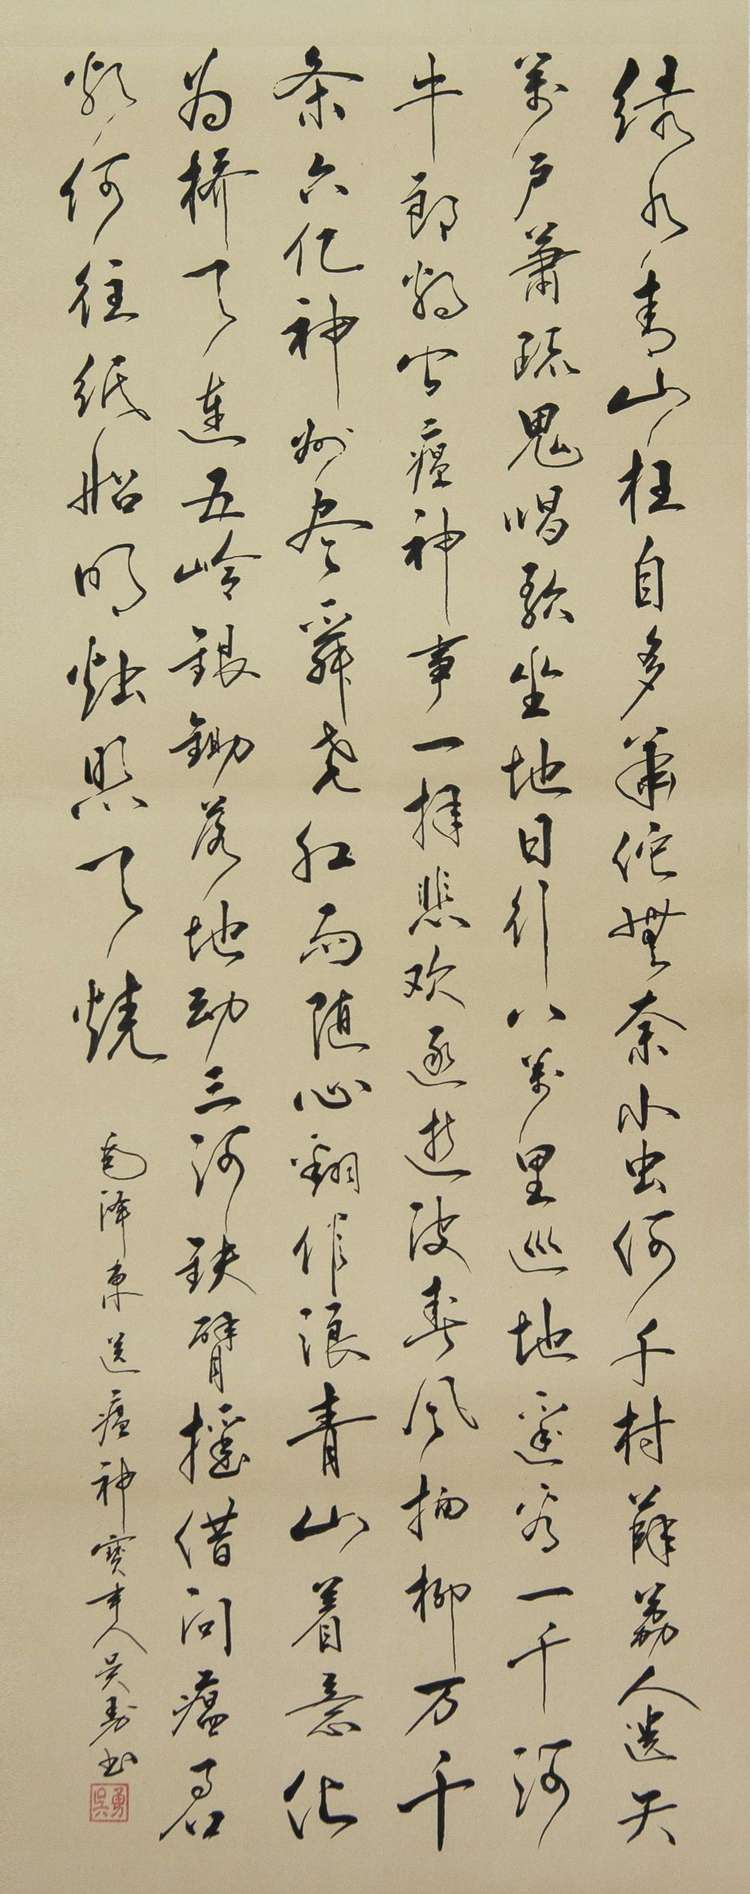 绿水青山枉自多華佗無奈小虫何千村薜荔人遗矢
萬户萧疏鬼唱歌坐地日行八萬里巡地遥看一千河
牛郎欲问瘟神事一样悲欢逐逝波春风杨柳万千
条六亿神州尽舜尧红雨随心翻作浪青山着意化
为桥天连五岭银锄落地动三河铁臂摇借问瘟君
欲何往纸船明烛照天烧
毛泽东送瘟神寶丰人吴勇书
吳勇